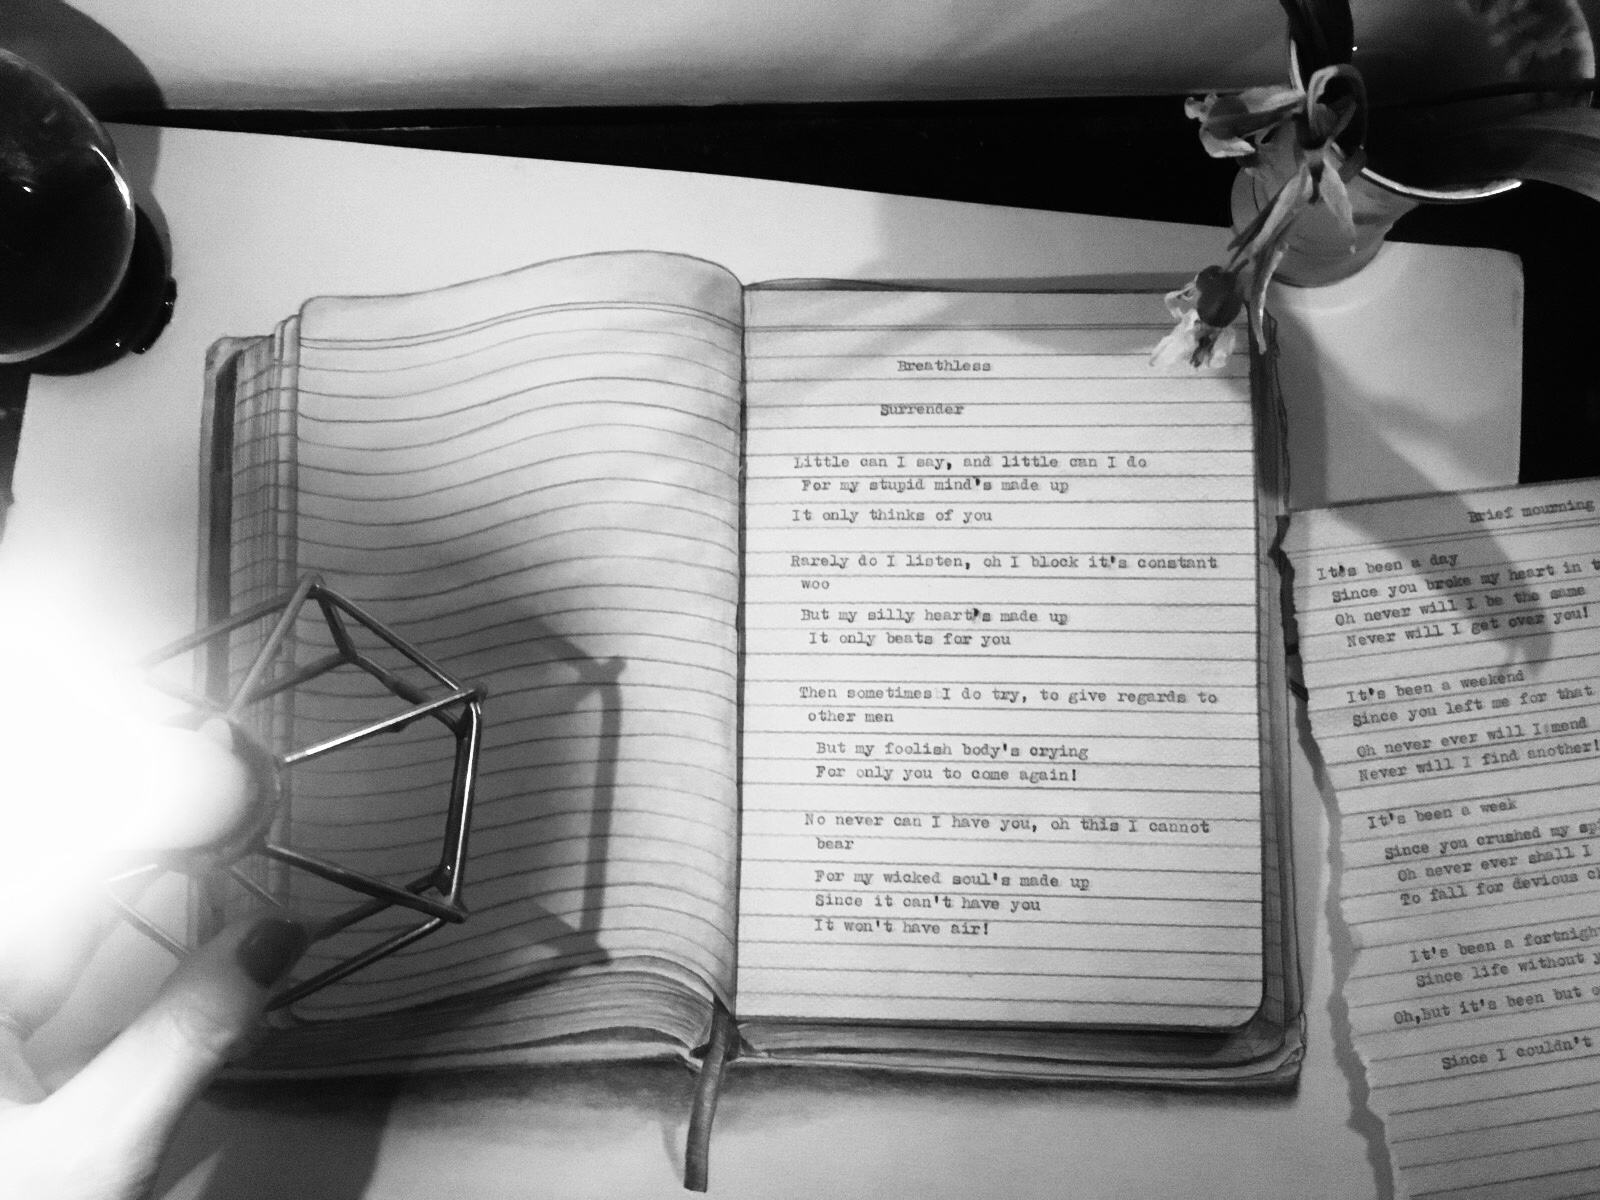 Breathless
Surrender
Little can I say, and little can I do
For my stupid mind's made up
It only thinks of you
Rarely do I listen, oh I block it's constant
woo
But my silly heart's made up
It only beats for you
Then sometimes I do try, to give regards to
other men
But my foolish body's crying
For only you to come again!
No never can I have you, oh this I cannot
bear
For my wicked soul's made up
Since it can't have you
It won't have air!
Brief mourning
It's been a day
Since you broke my heart in
Oh never will I be the same
Never will I get over you!
It's been a weekend
Since you left me for that
Oh never ever will I mend
Never will I find another!
It's been a week
Since you crushed my
Oh never ever shall I
To fall for devious
It's been a
Since life without
Oh,but it's been but
Since I couldn't